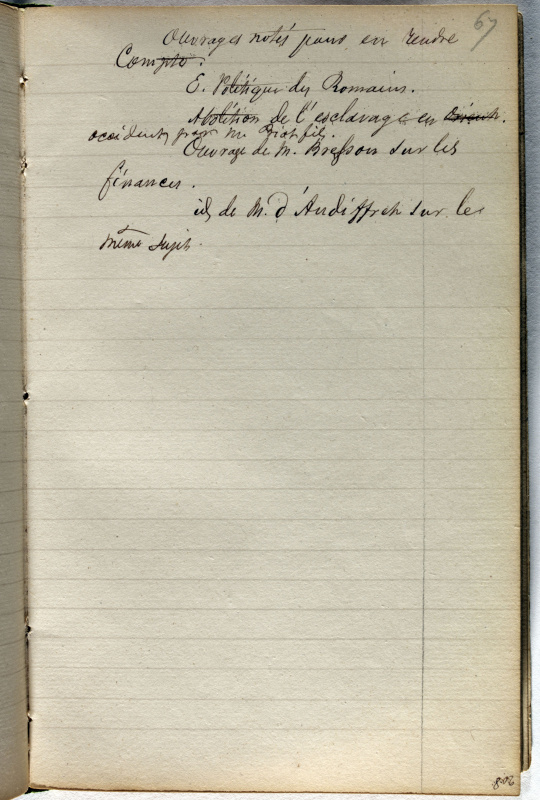 67
Ouvrages notés pour en rendre
Compte.
E. Politique des Romains.
Abolition de l'esclavage en
occident, par M. Biot fils.
Ouvrage de M. Bresson sur les
finances.
id de M. d'Audiffret sur le
même sujet.